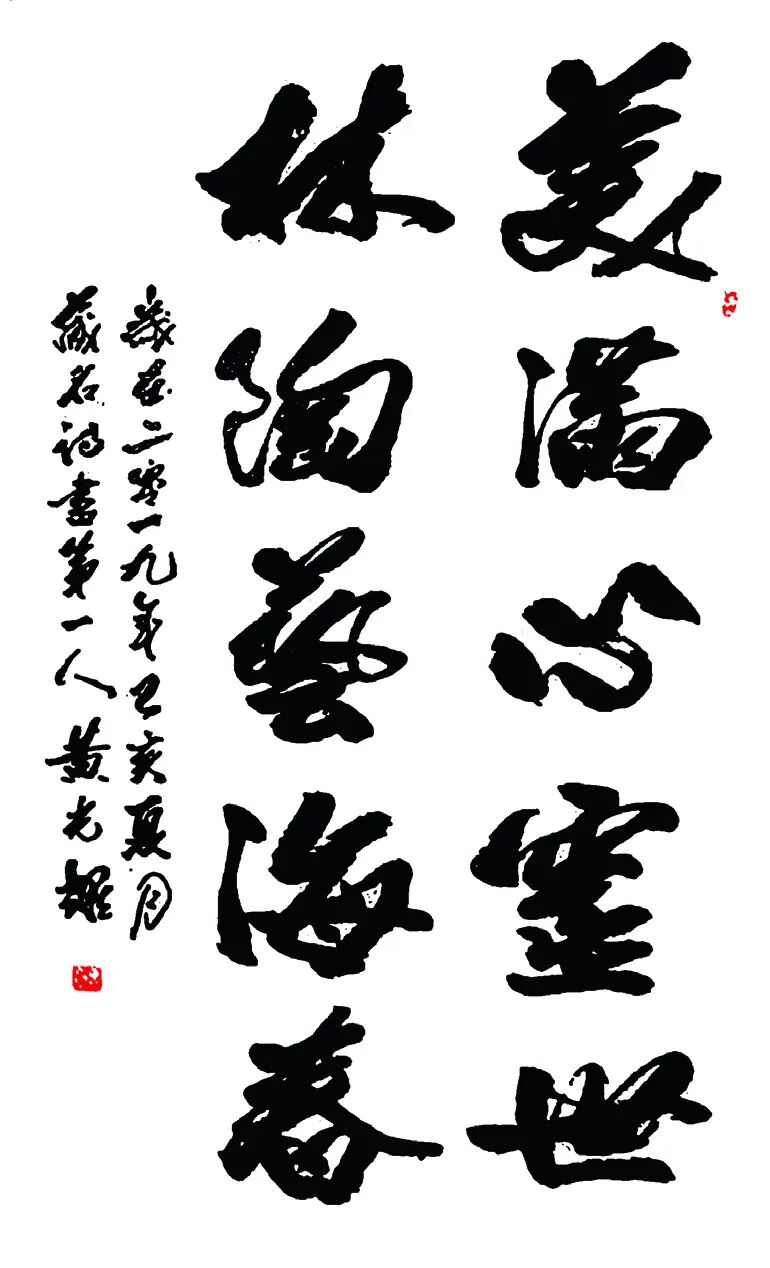 美满心灵世
林陶艺海春
岁在二零一九年己亥夏月
藏名诗书第一人黄光耀